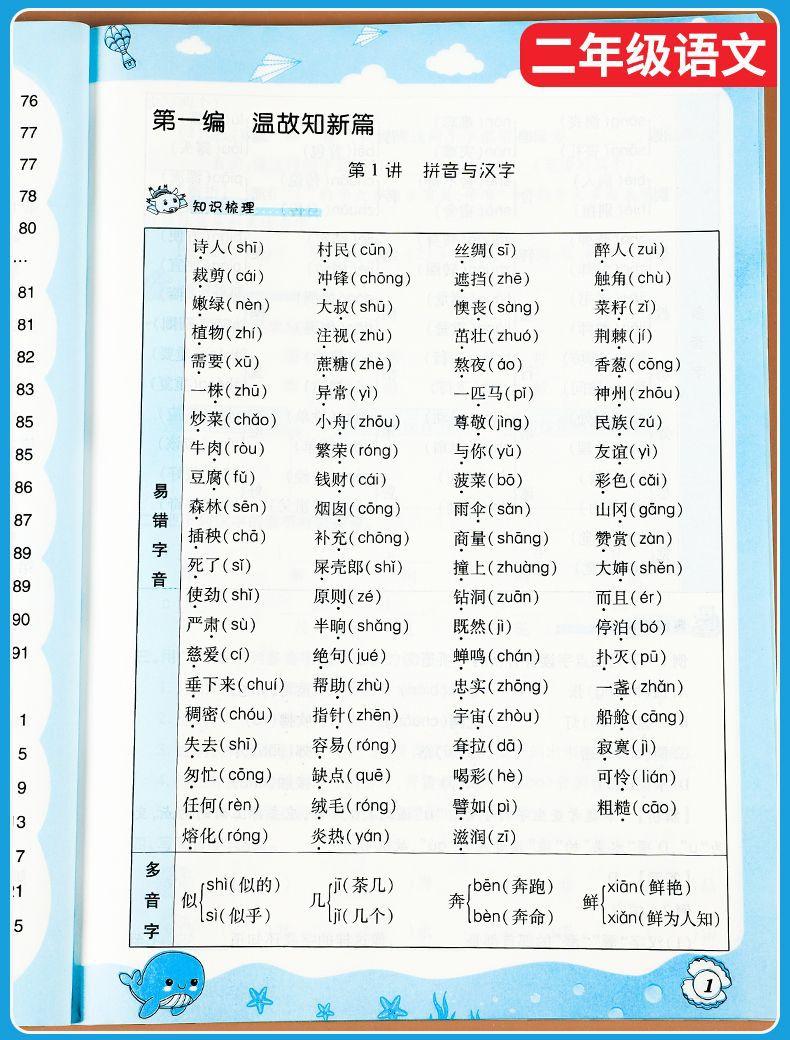 二年级语文
76
77
77
78
80
…
81
81
82
83
85
85
86
87
89
89
90
91
1
5
9
13
7
21
5
第一编 温故知新篇
第1讲 拼音与汉字
知识梳理
易错字音
诗人(shī) 村民(cūn) 丝绸(sī) 醉人(zuì)
裁剪(cái) 冲锋(chōng) 遮挡(zhē) 触角(chù)
嫩绿(nèn) 大叔(shū) 懊丧(sàng) 菜籽(zǐ)
植物(zhí) 注视(zhù) 茁壮(zhuó) 荆棘(jí)
需要(xū) 蔗糖(zhè) 熬夜(áo) 香葱(cōng)
一株(zhū) 异常(yì) 一匹马(pǐ) 神州(zhōu)
炒菜(chǎo) 小舟(zhōu) 尊敬(jìng) 民族(zú)
牛肉(ròu) 繁荣(róng) 与你(yǔ) 友谊(yì)
豆腐(fǔ) 钱财(cái) 菠菜(bō) 彩色(cǎi)
森林(sēn) 烟囱(cōng) 雨伞(sǎn) 山冈(gāng)
插秧(chā) 补充(chōng) 商量(shāng) 赞赏(zàn)
死了(sǐ) 屎壳郎(shǐ) 撞上(zhuàng) 大婶(shěn)
使劲(shǐ) 原则(zé) 钻洞(zuān) 而且(ér)
严肃(sù) 半晌(shǎng) 既然(jì) 停泊(bó)
慈爱(cí) 绝句(jué) 蝉鸣(chán) 扑灭(pū)
垂下来(chuí) 帮助(zhù) 忠实(zhōng) 一盏(zhǎn)
稠密(chóu) 指针(zhēn) 宇宙(zhòu) 船舱(cāng)
失去(shī) 容易(róng) 耷拉(dā) 寂寞(jì)
匆忙(cōng) 缺点(quē) 喝彩(hè) 可怜(lián)
任何(rèn) 绒毛(róng) 譬如(pì) 粗糙(cāo)
熔化(róng) 炎热(yán) 滋润(zī)
多音字
似 shì(似的) sì(似乎)
几 jī(茶几) jǐ(几个)
奔 bēn(奔跑) bèn(奔命)
鲜 xiān(鲜艳) xiǎn(鲜为人知)
1